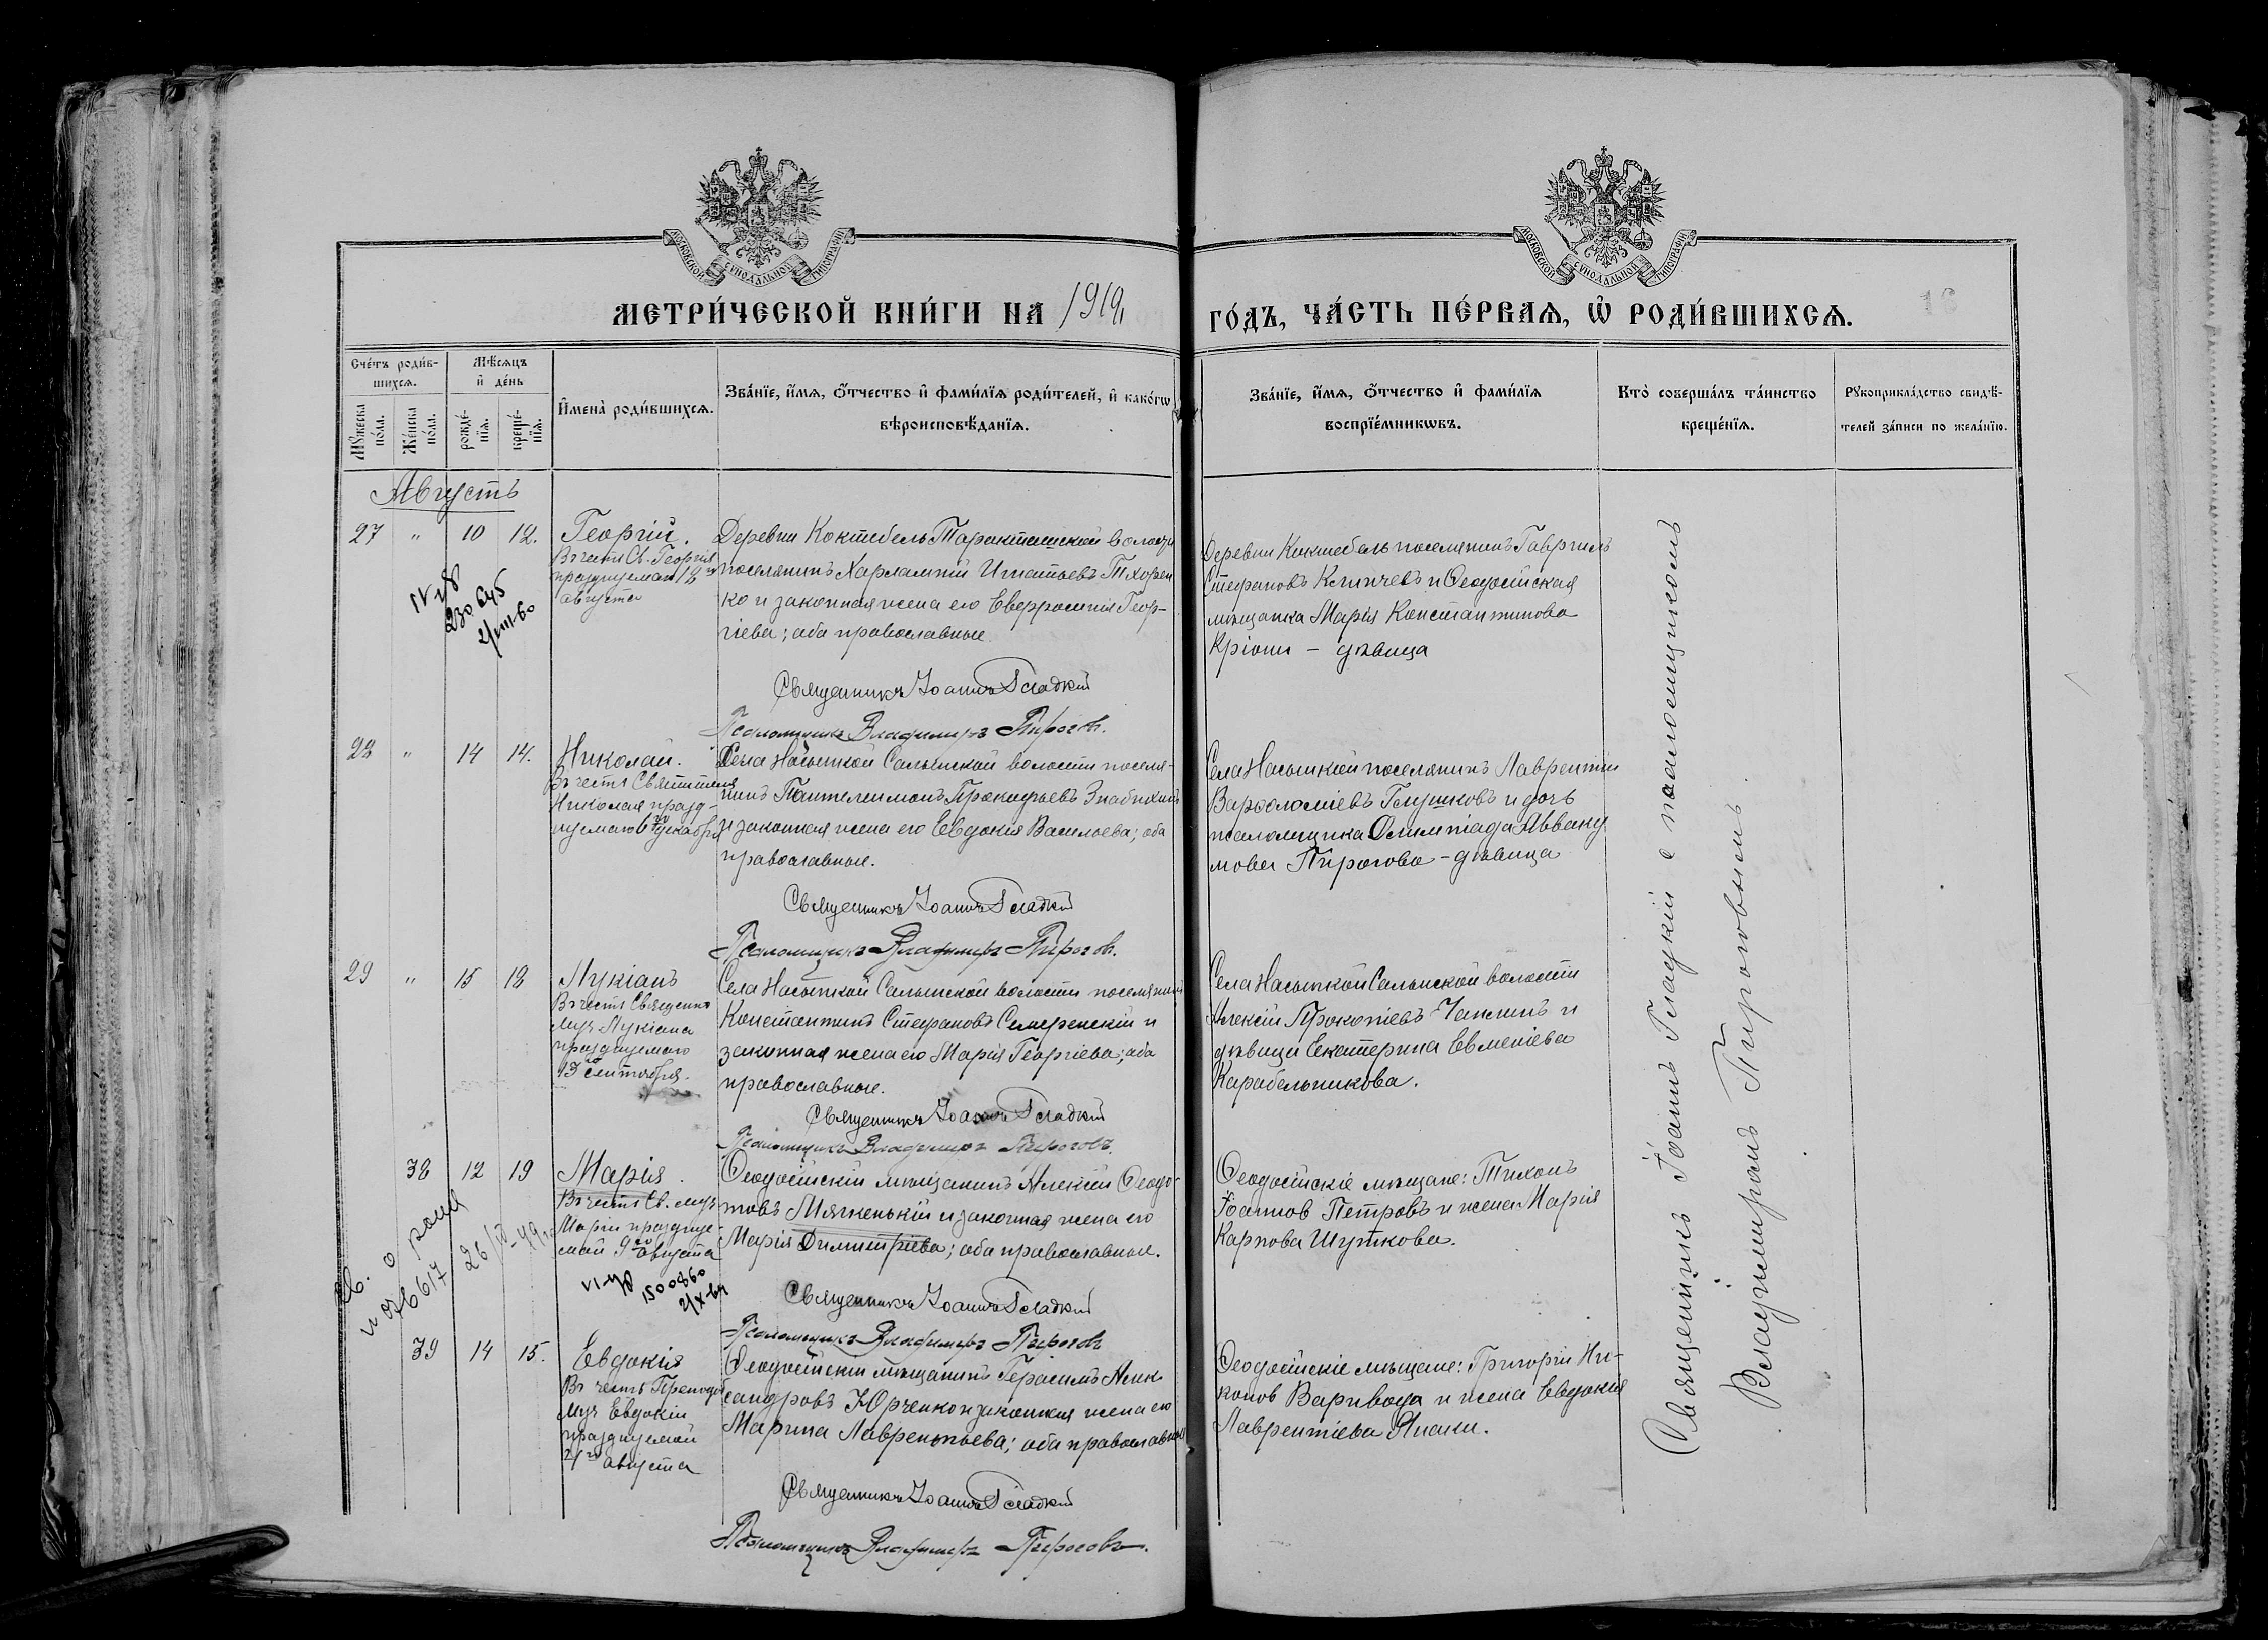 МОСКОВСКОЙ СУНОДАЛЬНОЙ ТИПОГРАФІИ
МОСКОВСКОЙ СУНОДАЛЬНОЙ ТИПОГРАФІИ
МЕТРИ́ЧЕСКОЙ КНИ́ГИ НА 1919
ГО́ДЪ, ЧА́СТЬ ПЕ́РВАѦ, Ѽ РОДИ́ВШИХСѦ.
Сче́тъ роди́в-
шихсѧ.
Мꙋжеска по́ла.
Же́нска по́ла.
Мѣ́сѧцъ
и҆ де́нь
рожде́-
нїѧ.
креще́-
нїѧ.
И҆мена̀ роди́вшихсѧ.
Зва́нїе, и҆́мѧ, ѻ҆́тчество и҆ фами́лїѧ роди́телей, и҆ како́гѡ
вѣроисповѣ́данїѧ.
Зва́нїе, и҆́мѧ, ѻ҆́тчество и҆ фами́лїѧ
воспрїе́мникѡвъ.
Кто̀ соверша́лъ та́инство
креще́нїѧ.
Рꙋкоприкла́дство свидѣ́-
телей за́писи по жела́нїю.
Августъ
27 " 10 12.
Георгій.
Въ честь Св. Георгія
празднуемаго 18го
августа
230645
2/VIII-60
Деревни Коктебель Таракташской волости
поселянинъ Харлампій Игнатьевъ Тхорен
ко и законная жена его Евфросинія Геор-
гіева; оба православные
Священникъ Іоаннъ Гладкій
Псаломщикъ Владимиръ Пироговъ.
Деревни Коктебель поселянинъ Гавріилъ
Стефановъ Клинчевъ и Ѳеодосійская
мѣщанка Марія Константинова
Кріони - дѣвица
28 " 14 14.
Николай.
Въ честь Святителя
Николая празд-
нуемаго 6го декабря
Села Насыпкой Салынской волости поселя-
нинъ Пантелеимонъ Прокофьевъ
и законная жена его Евдокія Васильева; оба
православные.
Священникъ Іоаннъ Гладкій
Псаломщикъ Владимиръ Пироговъ.
Села Насыпкой поселянинъ Лаврентій
Варѳоломіевъ Глушковъ и дочь
псаломщика Олимпіада Аввaку
мова Пирогова - дѣвица
29 " 15 18
Лукіанъ
Въ честь Священно
муч. Лукіана
празднуемаго
13 сентября.
Села Насыпкой Салынской волости поселянинъ
Константинъ Стефановъ Семеренскій и
законная жена его Марія Георгіева; оба
православные.
Священникъ Іоаннъ Гладкій
Псаломщикъ Владимиръ Пироговъ.
Села Насыпкой Салынской волости
Алексій Прокопіевъ Чаплинъ и
дѣвица Екатерина Евменіева
Карабельникова.
38 12 19
Марія.
Въ честь Св. муч.
Маріи празднуе-
мой 9го августа
св. о рожд
26/IV-49
1500860
2/X-64
Ѳеодосійскій мѣщанинъ Алексій Ѳеодо-
товъ Мягкенькій и законная жена его
Марія Димитріева; оба православные.
Священникъ Іоаннъ Гладкій
Псаломщикъ Владимиръ Пироговъ
Ѳеодосійскіе мѣщане: Тихонъ
Іоанновъ Петровъ и жена Марія
Карпова Шуткова.
39 14 15.
Евдокія
Въ честь Преподоб
муч. Евдокіи
празднуемой
4го августа
Ѳеодосійскій мѣщанинъ Герасимъ Алек
сандровъ Юрченко и законная жена его
Марина Лаврентьева; оба православные
Священникъ Іоаннъ Гладкій
Псаломщикъ Владимиръ Пироговъ.
Ѳеодосійскіе мѣщане: Григорій Ни-
коновъ Варивода и жена Евдокія
Лаврентіева
Священникъ Іоаннъ Гладкій с псаломщикомъ
Владиміромъ Пироговымъ.